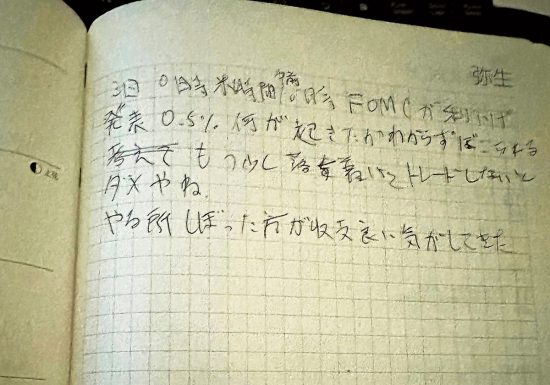 弥生
3日 0時 米時間 午前 FOMCが利下げ
発表 0.5% 何が起きたかわからずぼこられる
もう少し落ち着いてトレードしないと
ダメやね。
やる所しぼった方が収支良い気がしてきた